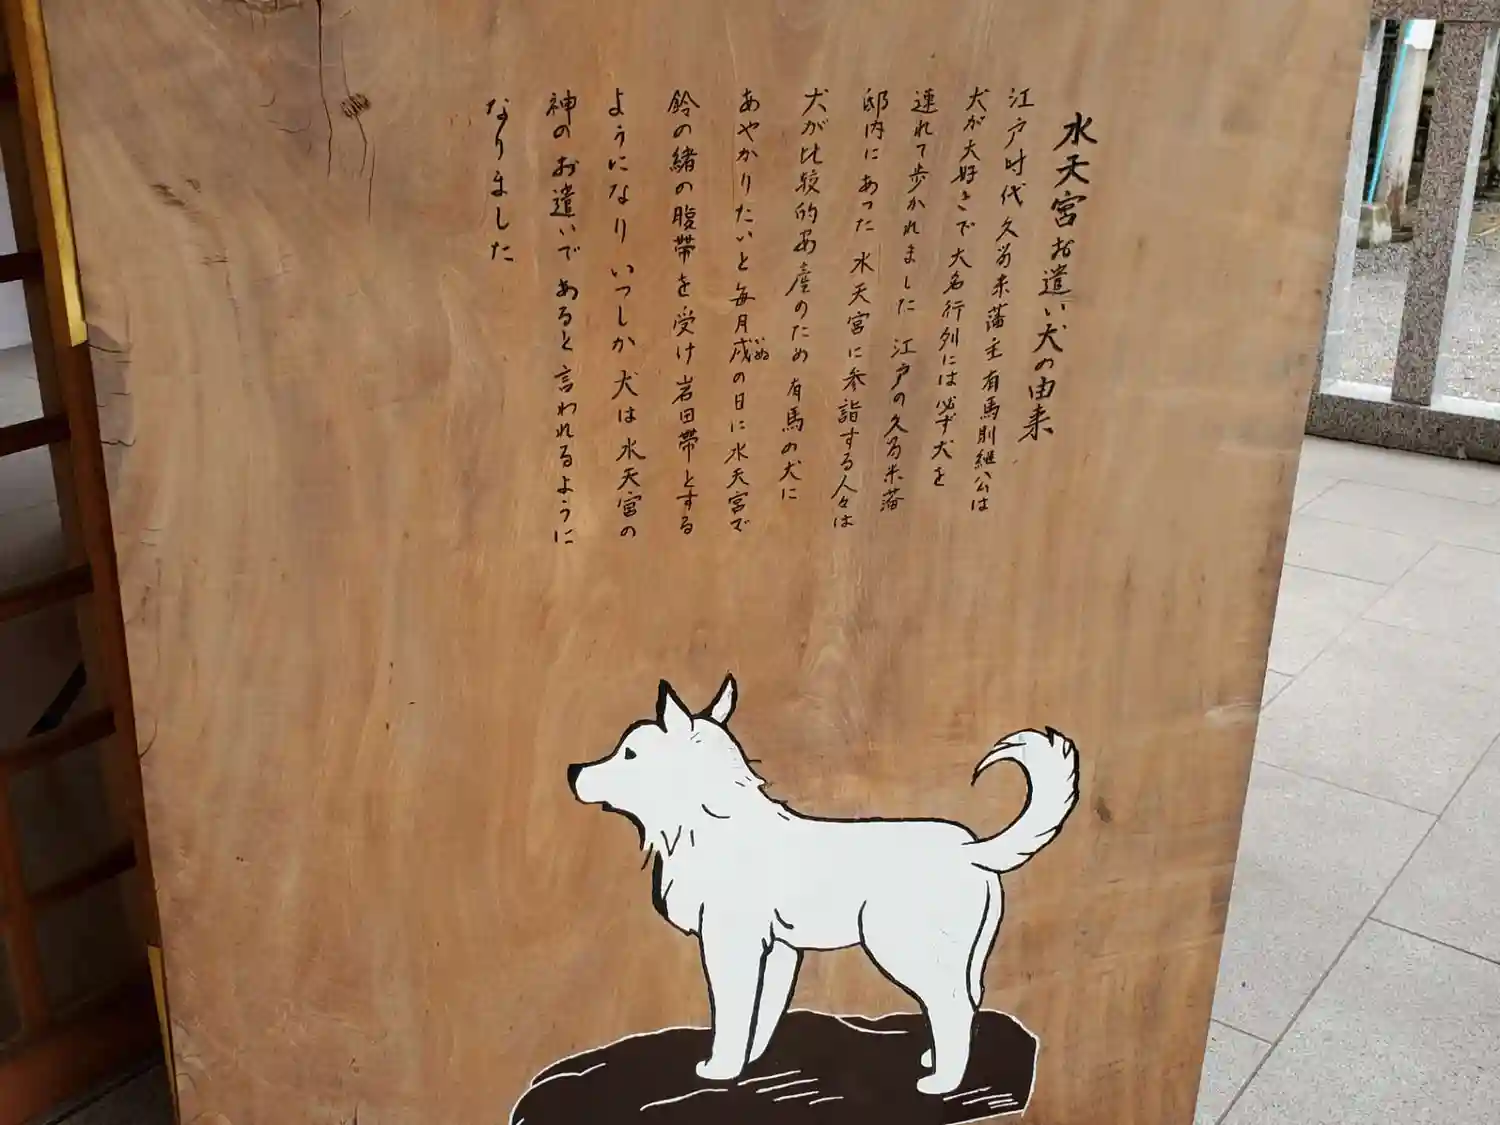 水天宮お遣い犬の由来
江戸時代久留米藩主有馬則継公は
犬が大好きで大名行列には必ず犬を
連れて歩かれました 江戸の久留米藩
邸内にあった水天宮に参詣する人々は
犬が比較的安産のため有馬の犬に
あやかりたいと毎月戌の日に水天宮で
いぬ
鈴の緒の腹帯を受け岩田帯とする
ようになりいつしか犬は水天宮の
神のお遣いであると言われるように
なりました